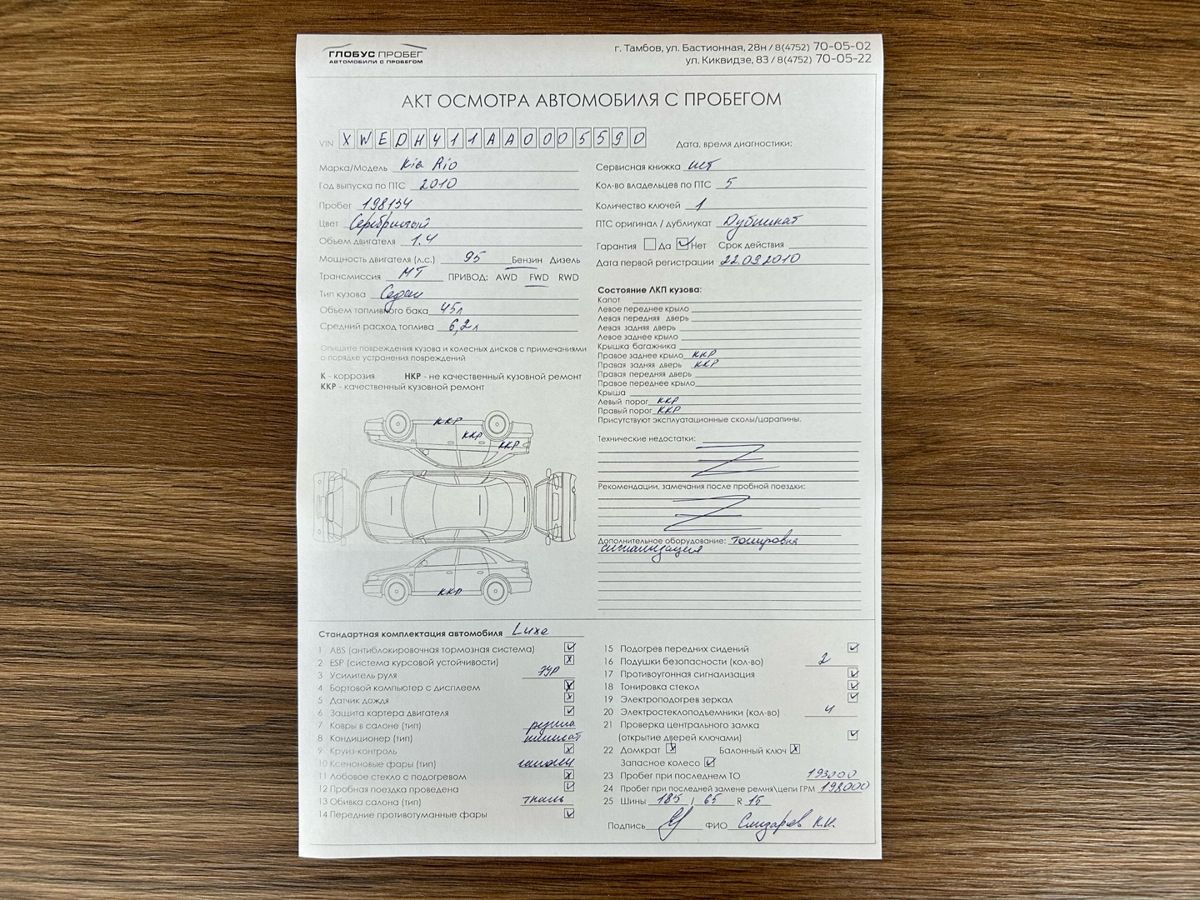 ГЛОБУС ПРОБЕГ
АВТОМОБИЛИ С ПРОБЕГОМ
г. Тамбов, ул. Бастионная, 28н / 8(4752) 70-05-02
ул. Киквидзе, 83 / 8(4752) 70-05-22
АКТ ОСМОТРА АВТОМОБИЛЯ С ПРОБЕГОМ
VIN XWEDH411AA0005590
Дата, время диагностики:
Марка/Модель Kia Rio
Год выпуска по ПТС 2010
Пробег 198134
Цвет Серебристый
Объем двигателя 1.4
Мощность двигателя (л.с.) 95 Бензин Дизель
Трансмиссия МТ ПРИВОД: AWD FWD RWD
Тип кузова Седан
Объем топливного бака 45л
Средний расход топлива 6,2л
Сервисная книжка нет
Кол-во владельцев по ПТС 5
Количество ключей 1
ПТС оригинал / дубликат Дубликат
Гарантия Да Нет Срок действия
Дата первой регистрации 22.09.2010
Опишите повреждения кузова и колесных дисков с примечаниями
о порядке устранения повреждений
К - коррозия НКР - не качественный кузовной ремонт
ККР - качественный кузовной ремонт
ККР
ККР
ККР
ККР
Состояние ЛКП кузова:
Капот
Левое переднее крыло
Левая передняя дверь
Левая задняя дверь
Левое заднее крыло
Крышка багажника
Правое заднее крыло ККР
Правая задняя дверь ККР
Правая передняя дверь
Правое переднее крыло
Крыша
Левый порог ККР
Правый порог ККР
Присутствуют эксплуатационные сколы/царапины.
Технические недостатки:
Рекомендации, замечания после пробной поездки:
Дополнительное оборудование: Тонировка
сигнализация
Стандартная комплектация автомобиля Luxe
1 ABS (антиблокировочная тормозная система)
2 ESP (система курсовой устойчивости)
3 Усилитель руля ГУР
4 Бортовой компьютер с дисплеем
5 Датчик дождя
6 Защита картера двигателя
7 Ковры в салоне (тип) резина
8 Кондиционер (тип) климат
9 Круиз-контроль
10 Ксеноновые фары (тип)
11 Лобовое стекло с подогревом
12 Пробная поездка проведена
13 Обивка салона (тип) ткань
14 Передние противотуманные фары
15 Подогрев передних сидений
16 Подушки безопасности (кол-во) 2
17 Противоугонная сигнализация
18 Тонировка стекол
19 Электроподогрев зеркал
20 Электростеклоподъемники (кол-во) 4
21 Проверка центрального замка
(открытие дверей ключами)
22 Домкрат Балонный ключ
Запасное колесо
23 Пробег при последнем ТО 193000
24 Пробег при последней замене ремня\цепи ГРМ 192000
25 Шины 185 / 65 R 15
Подпись ФИО